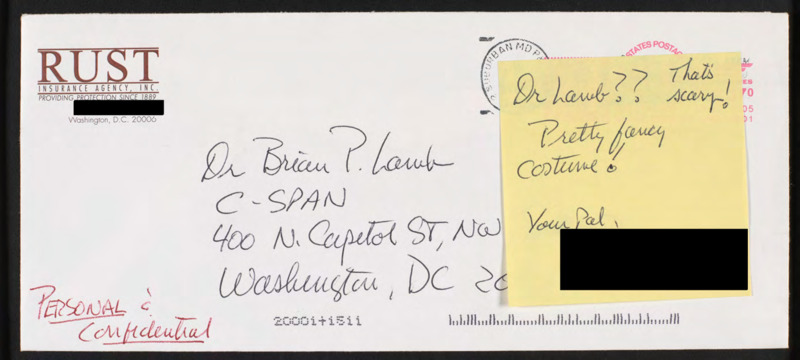 RUST
INSURANCE AGENCY, INC.
PROVIDING PROTECTION SINCE 1889
Washington, D.C. 20006
SUBURBAN MD
STATES POSTAG
70
05
01
Dr Lamb?? That's
scary!
Pretty fancy
costume!
Your Pal,
Dr Brian P. Lamb
C-SPAN
400 N. Capitol ST, NW
Washington, DC 20
PERSONAL &
Confidential
20001+1511